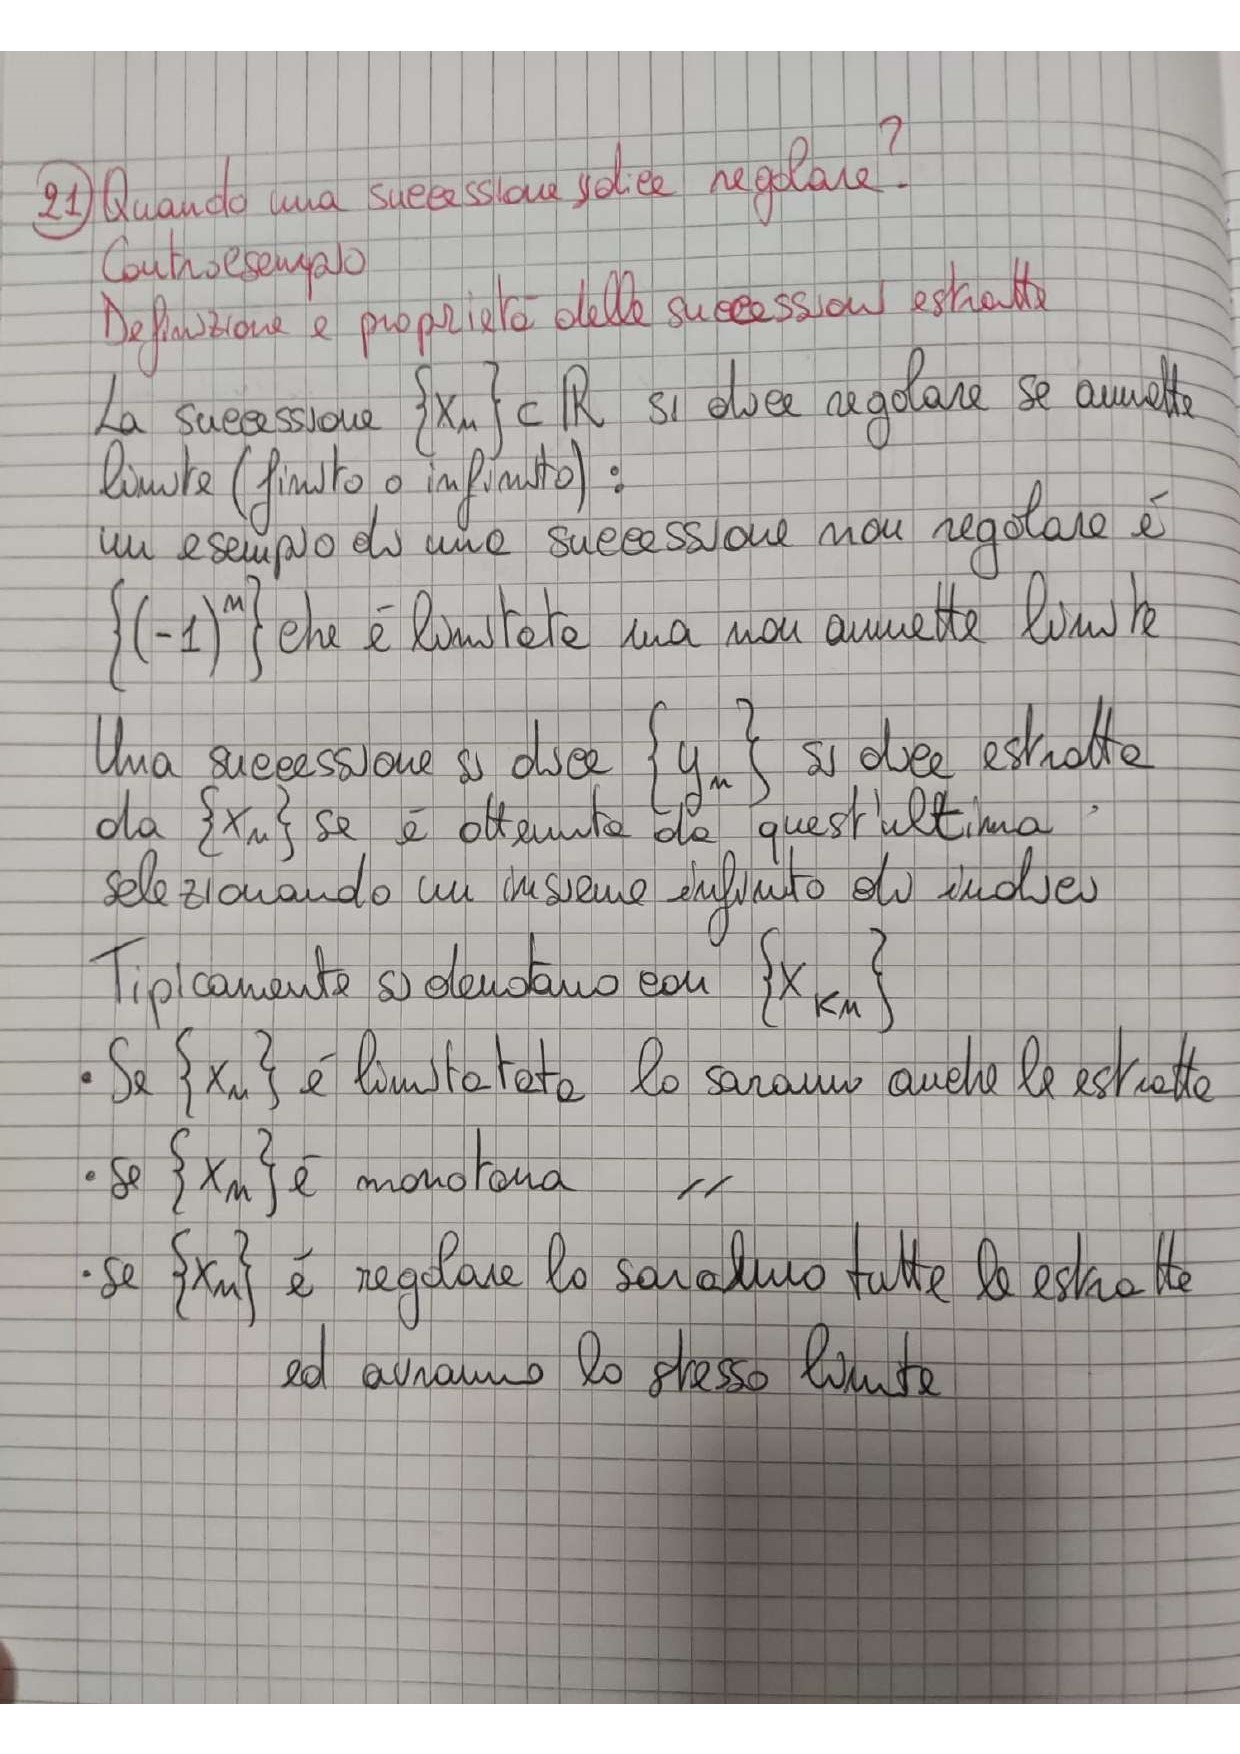 21) Quando una successione si dice regolare?
Controesempio
Definizione e proprietà delle successioni estratte
La successione {xn} ⊂ ℝ si dice regolare se ammette
limite (finito o infinito):
un esempio di una successione non regolare è
{(-1)^n} che è limitata ma non ammette limite
Una successione si dice {yn} si dice estratta
da {xn} se è ottenuta da quest'ultima
selezionando un insieme infinito di indici
Tipicamente si denotano con {x_kn}
• Se {xn} è limitatata lo saranno anche le estratte
• se {xn} è monotona //
• se {xn} è regolare lo saranno tutte le estratte
ed avranno lo stesso limite